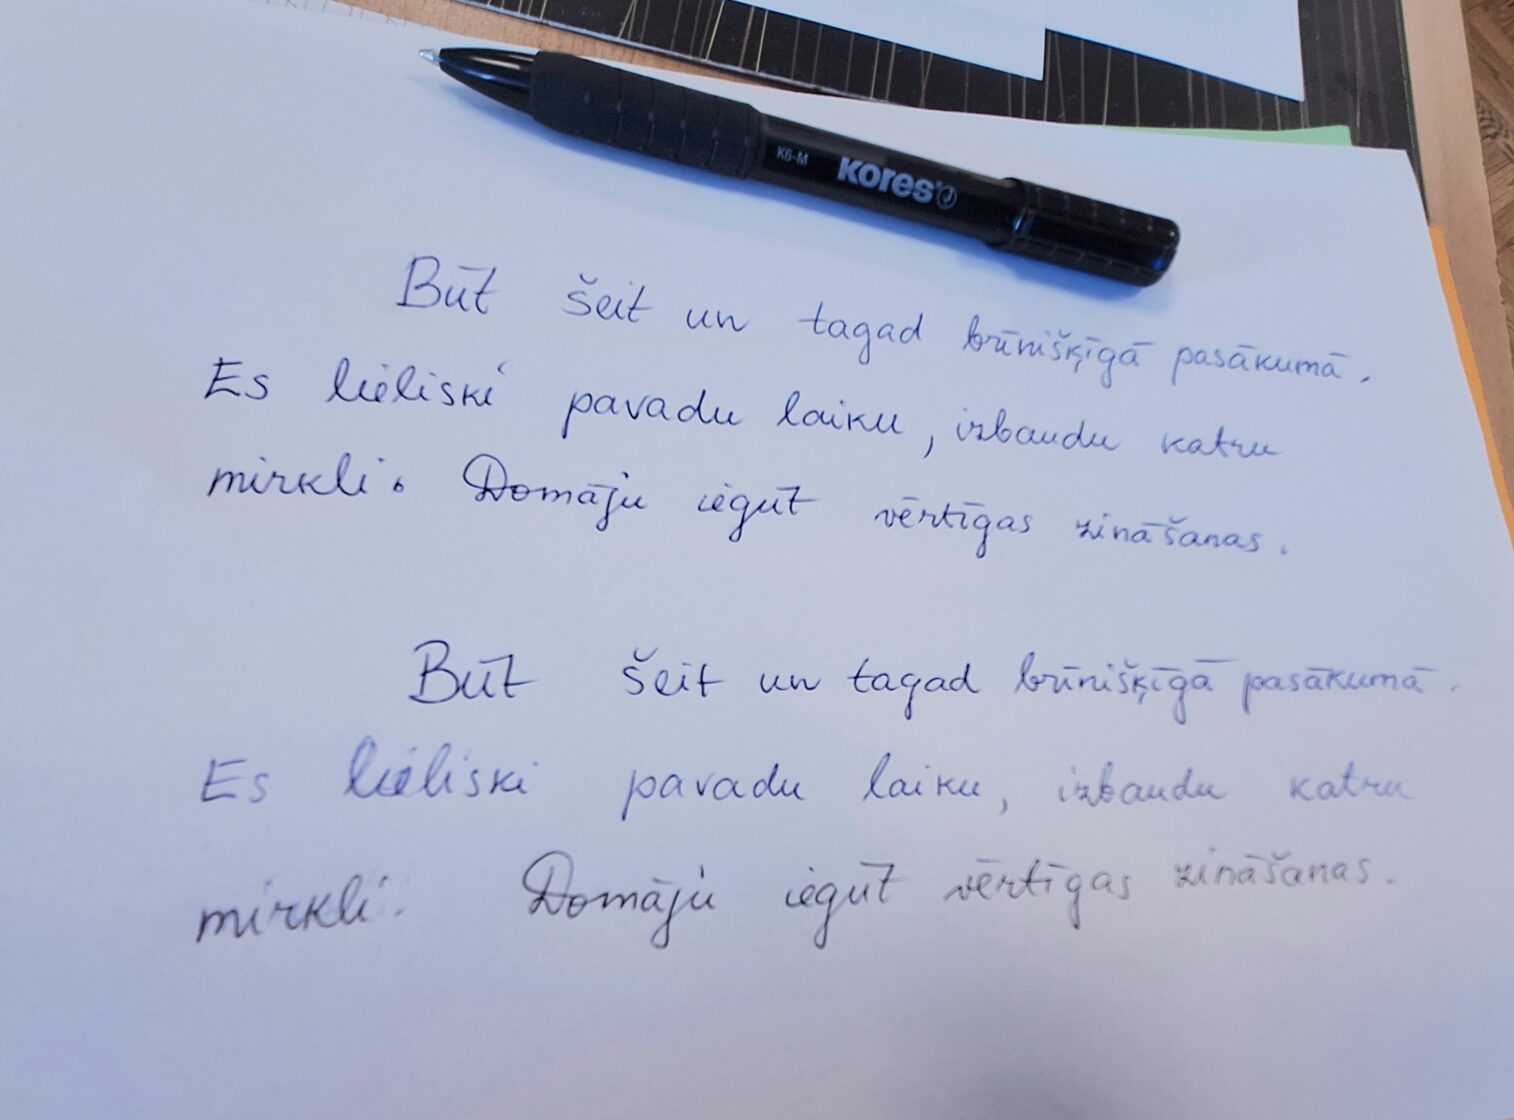 K6-M kores
Būt šeit un tagad brīnišķīgā pasākumā.
Es lieliski pavadu laiku, izbaudu katru
mirkli. Domāju iegūt vērtīgas zināšanas.
Būt šeit un tagad brīnišķīgā pasākumā.
Es lieliski pavadu laiku, izbaudu katru
mirkli. Domāju iegūt vērtīgas zināšanas.